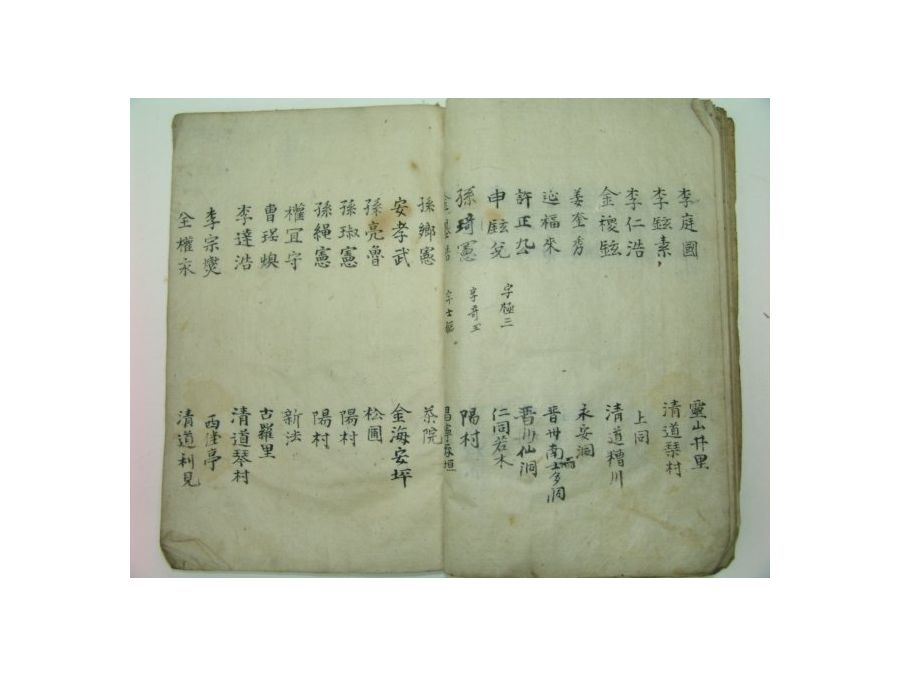 李庭國 靈山井里
李鉉素 清道琴村
李仁浩 上同
金稷鉉 清道糟川
姜奎秀 永安洞
福來 晋州南士多洞
許正 晋州仙洞
申鉉兌 字極三 仁同若木
孫琦憲 字奇玉 陽村
字士
孫鄉憲 蔡院
安孝武 金海安坪
孫亮魯 松圃
孫琡憲 陽村
孫繩憲 陽村
權宜守 新法
曹煥 古羅里
李達浩 清道琴村
李宗燮 西亭
全權永 清道利見